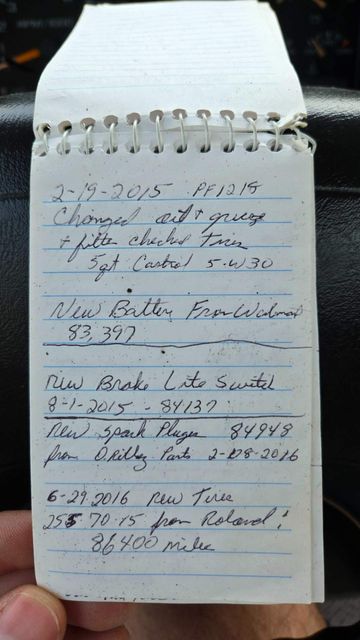 2-19-2015 PF1218
Changed oil + grease
+ filter checked Tires
5 qt Castrol 5-W30
New Battery From Walmart
83,397
new Brake Lite Switch
8-1-2015 - 84137
new Spark Plugs 84948
from O Rilley Parts 2-8-2016
6-29-2016 new Tires
255 70-15 from Roland's
86400 miles